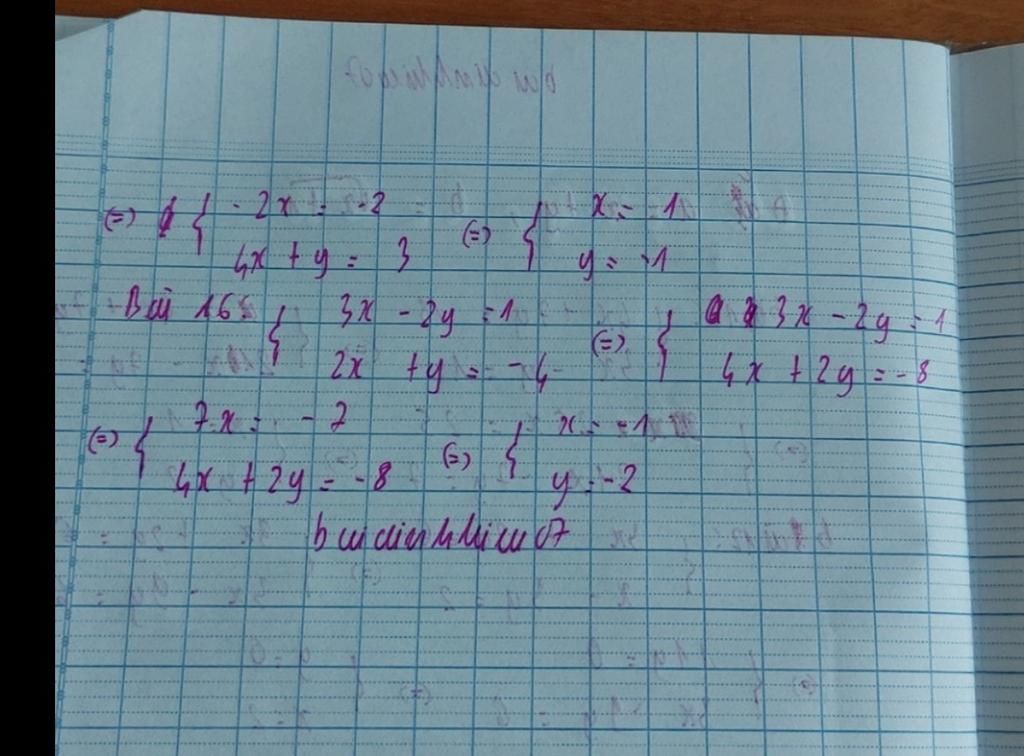 (=) { -2x = -2
4x + y = 3 (=) { x = 1
y = -1
Bài 16: { 3x - 2y = 1
2x + y = -4 (=) { 3x - 2y = 1
4x + 2y = -8
(=) { 7x = -7
4x + 2y = -8 (=) { x = -1
y = -2